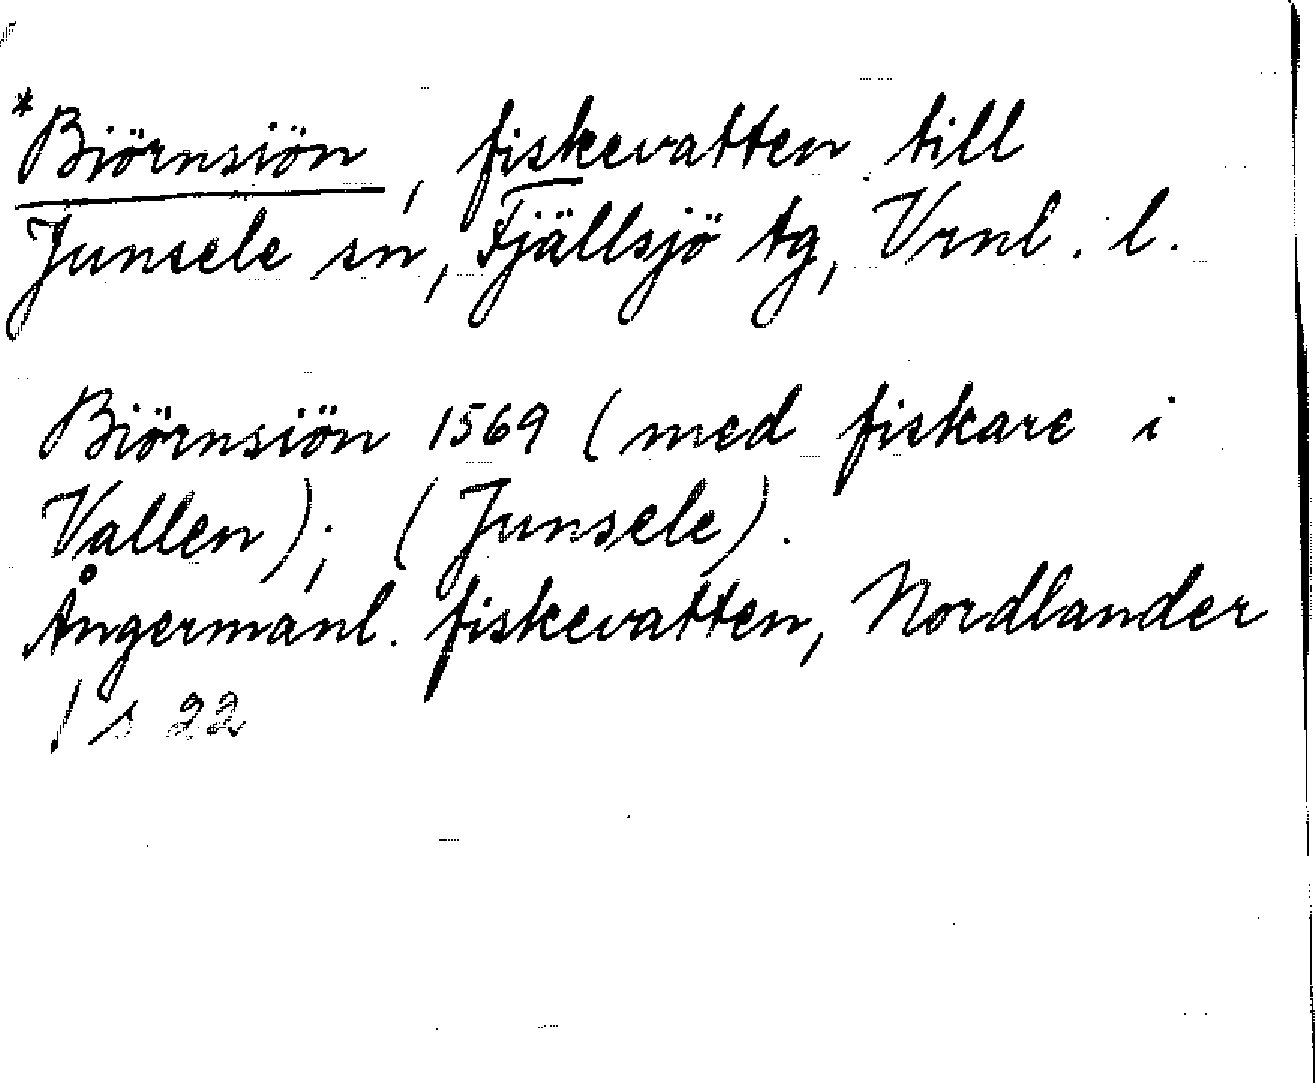 *Biörnsiön, fiskevatten till
Junsele sn, Fjällsjö tg, Vrnl. l.
Biörnsiön 1569 (med fiskare i
Vallen); (Junsele).
Ångermanl. fiskevatten, Nordlander
/ s 22